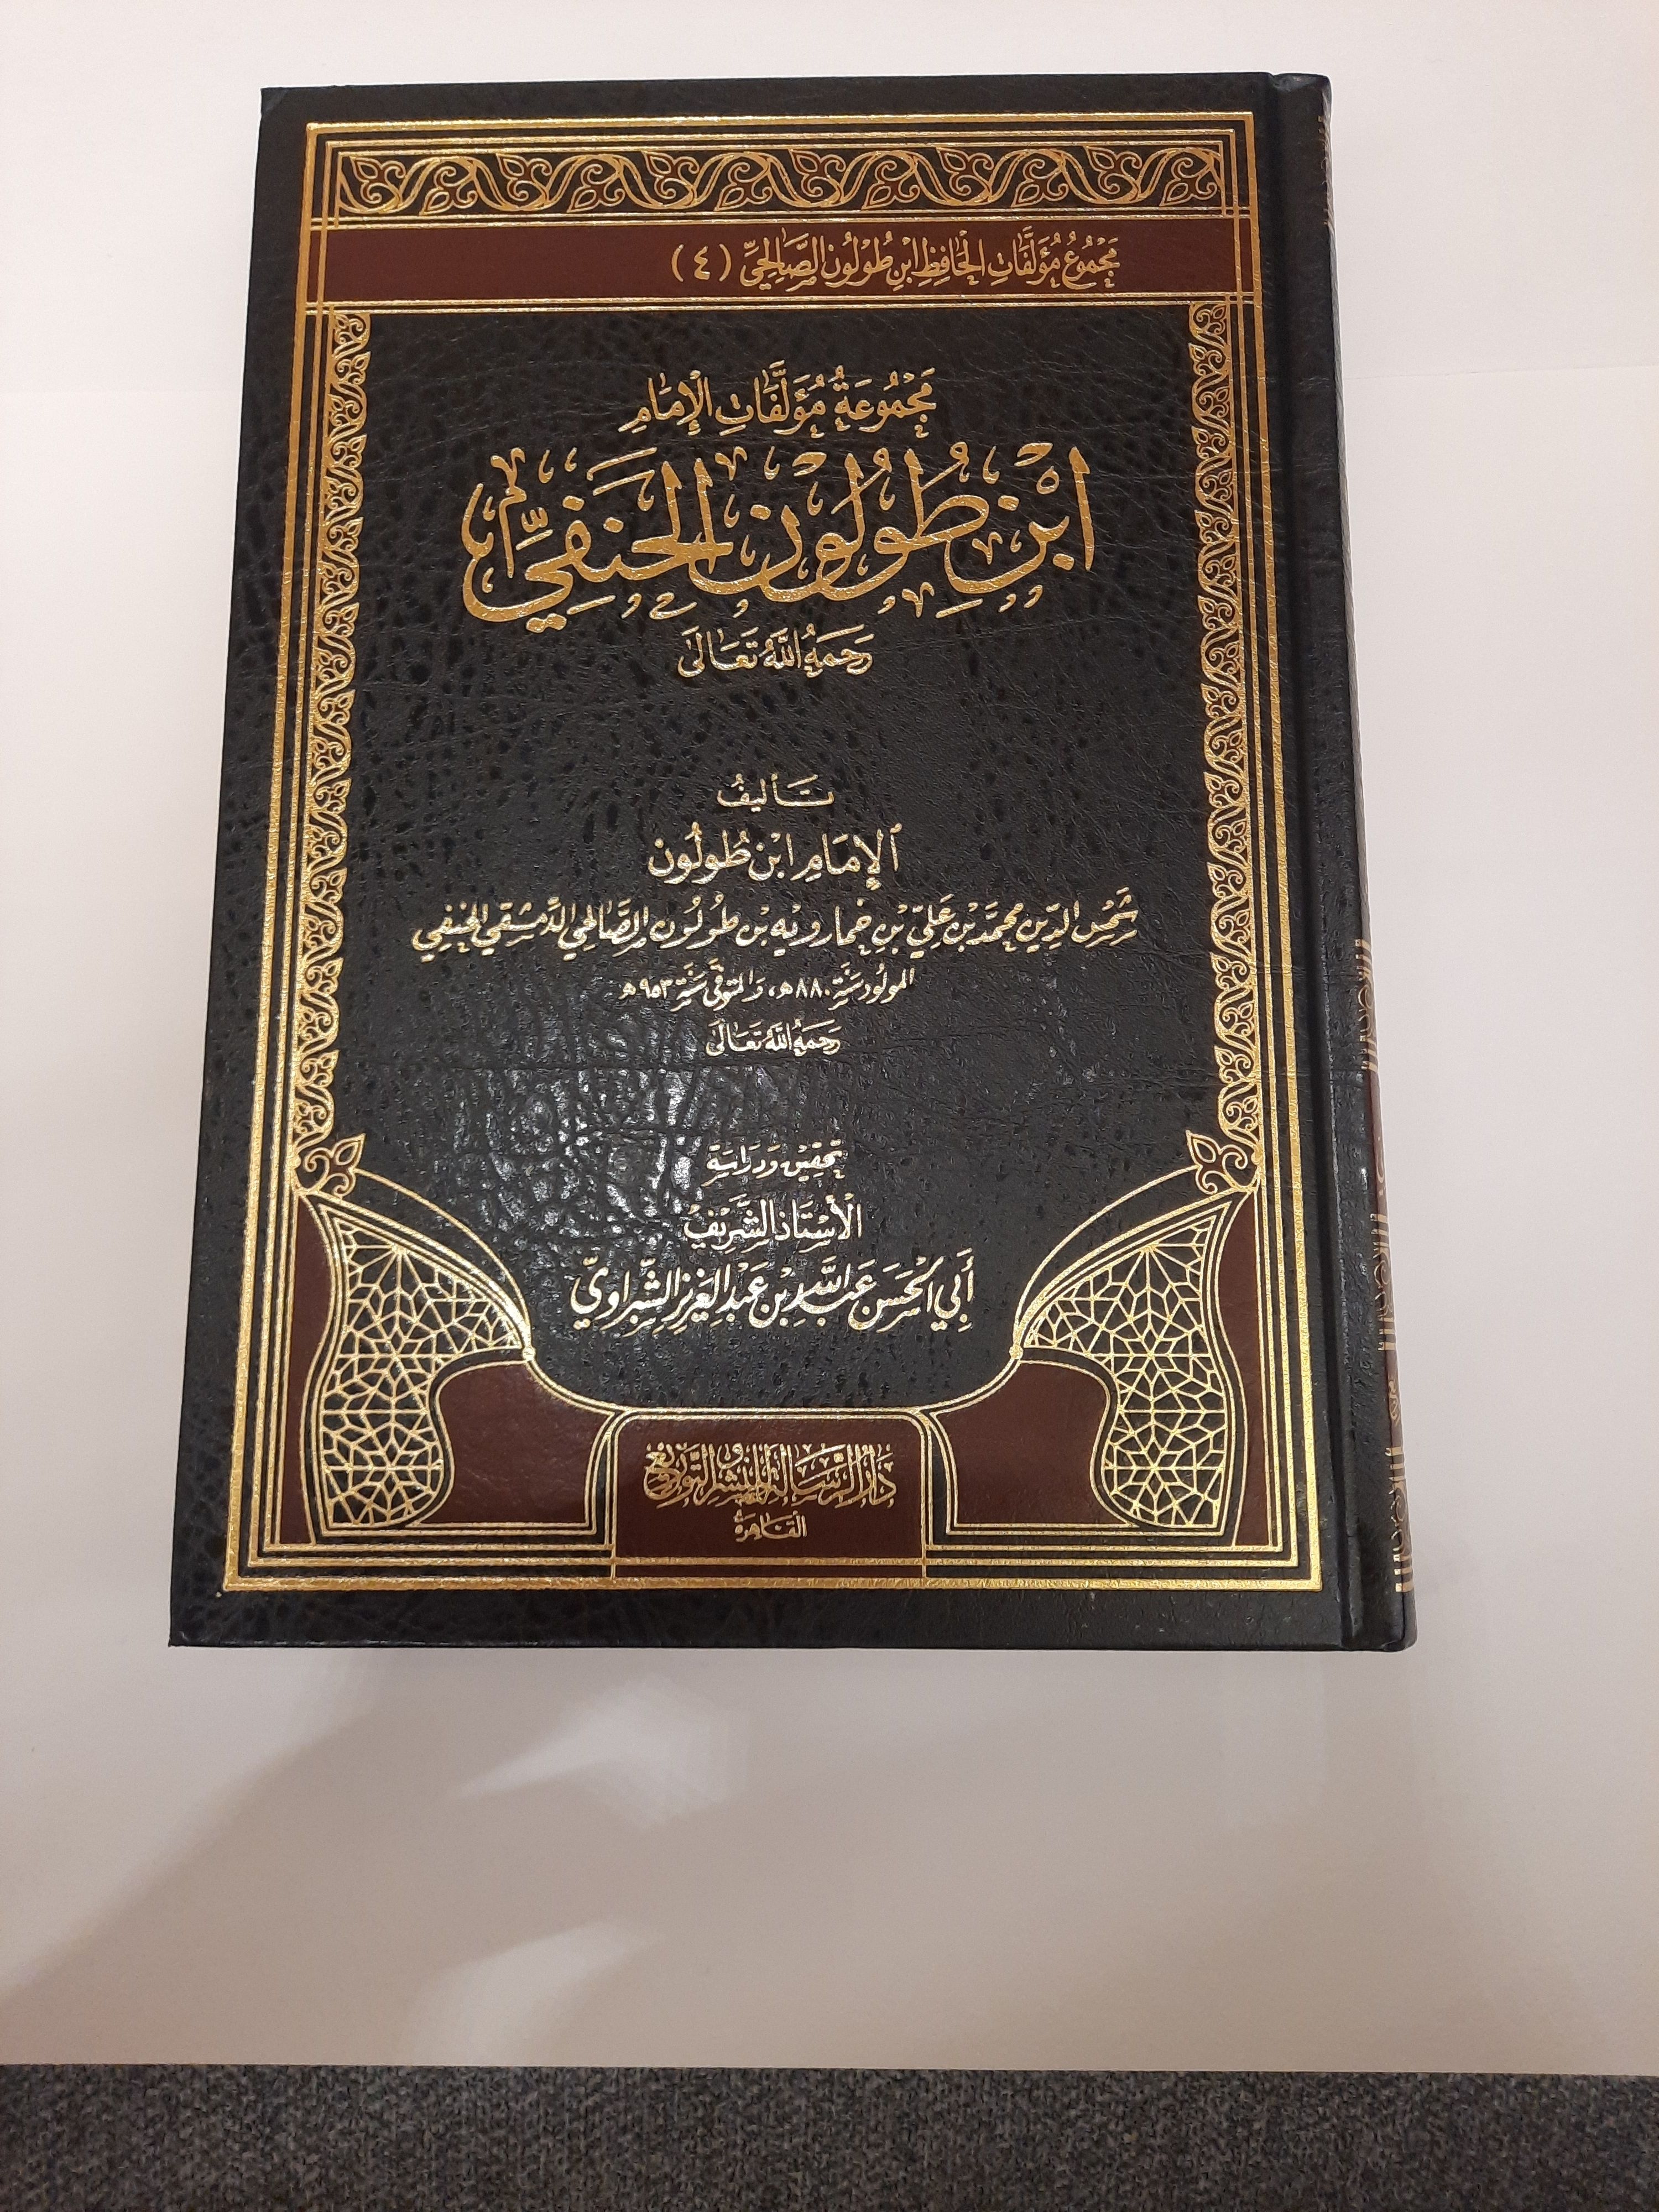 مَجْمُوعُ مُؤَلَّفَاتِ الْحَافِظِ ابْنِ طُولُونَ الصَّالِحِيِّ (٤)
مَجْمُوعَةُ مُؤَلَّفَاتِ الْإِمَامِ
ابْنِ طُولُونَ الْحَنَفِيِّ
رَحِمَهُ اللَّهُ تَعَالَى
تَأْلِيفُ
الْإِمَامِ ابْنِ طُولُون
شَمْسِ الدِّينِ مُحَمَّدِ بْنِ عَلِيِّ بْنِ خمارويه بْنِ طُولُون الصَّالِحِي الدِّمَشْقِي الحَنَفِي
المولُود سَنَة ٨٨٠هـ، وَالمتوفَّى سَنَة ٩٥٣هـ
رَحِمَهُ اللَّهُ تَعَالَى
تحقيق وَدرَاسَة
الْأُسْتَاذِ الشَّرِيفِ
أَبِي الْحَسَن عَبْدِ اللَّهِ بْنِ عَبْدِ الْعَزِيزِ الشّبراوِيّ
دَارُ الرِّسَالَةِ لِلنَّشْرِ وَالتَّوْزِيعِ
القَاهِرَةُ